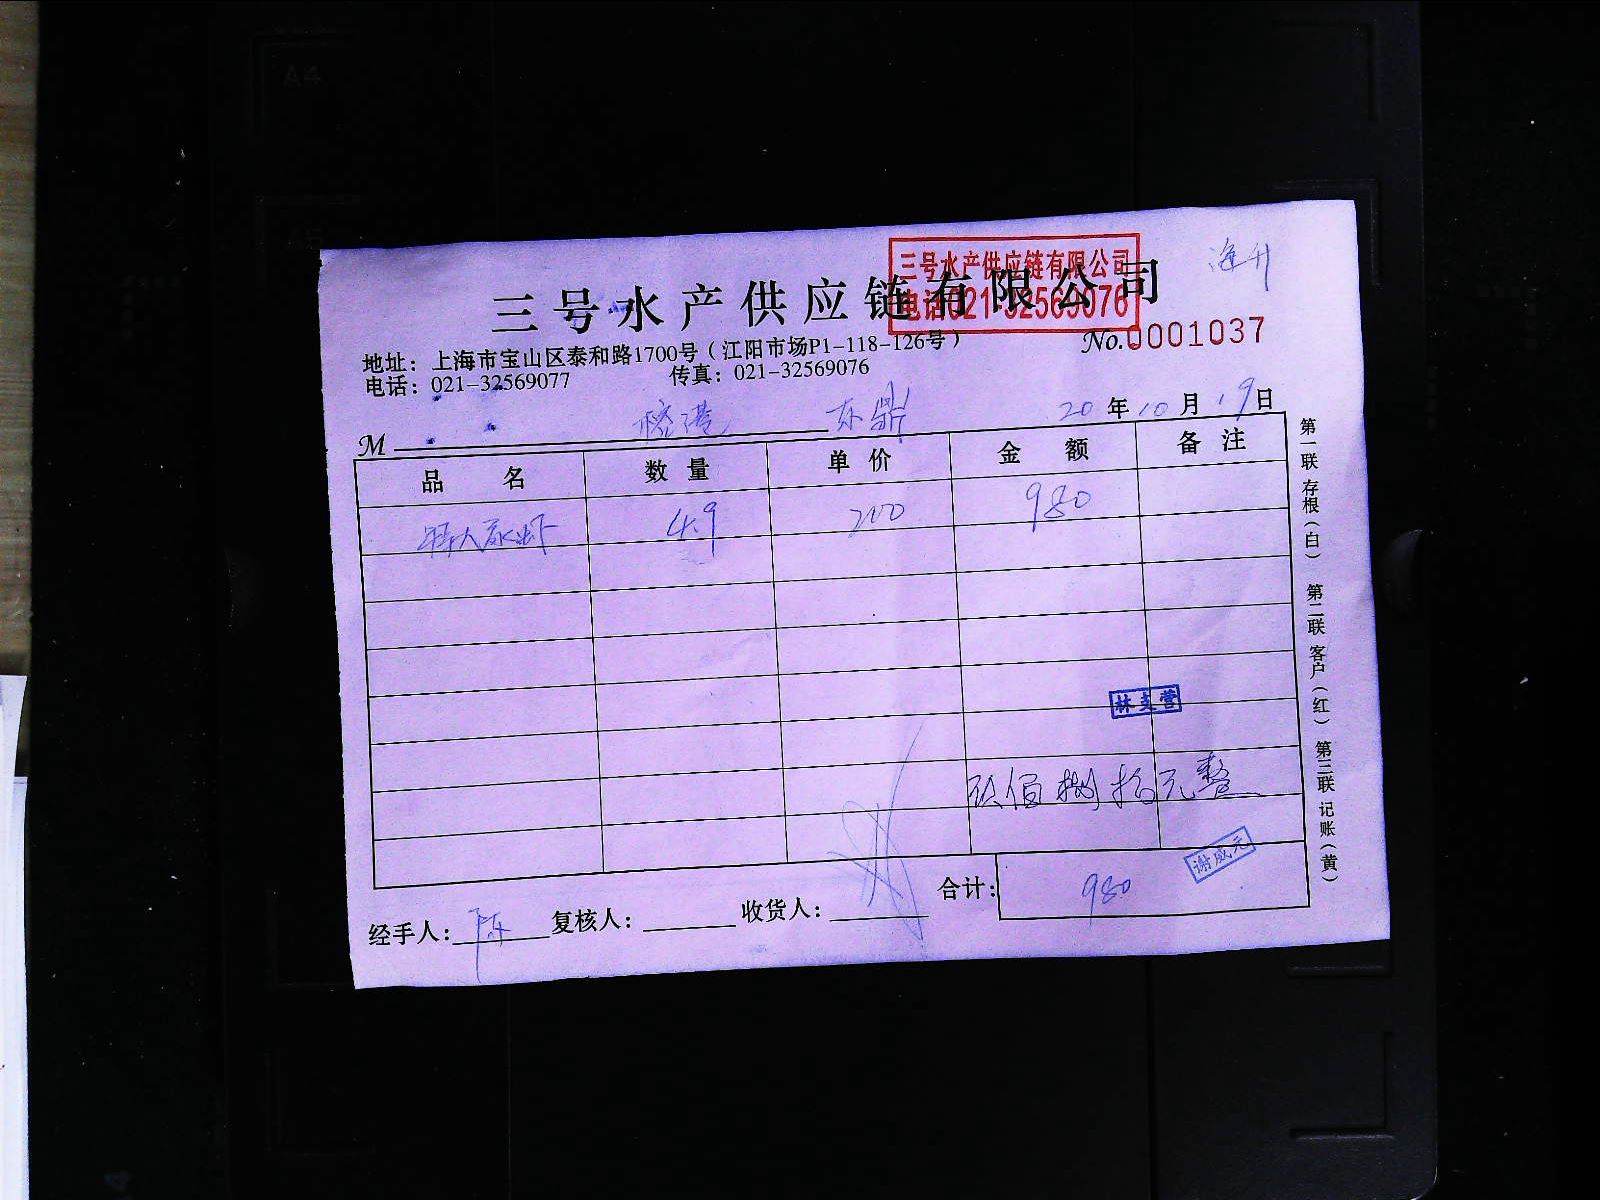 三号水产供应链有限公司
三号水产供应链有限公司
电话021-32569076
海升
地址：上海市宝山区泰和路1700号（江阳市场P1-118-126号）
No.0001037
电话：021-32569077 传真：021-32569076
M 榕港 东鼎 20年10月19日
品名 数量 单价 金额 备注
特大 虾 4.9 200 980
林支营
玖佰捌拾元整
谢威元
合计：980
经手人：陈 复核人： 收货人：
第一联 存根（白） 第二联 客户（红） 第三联 记账（黄）
A4